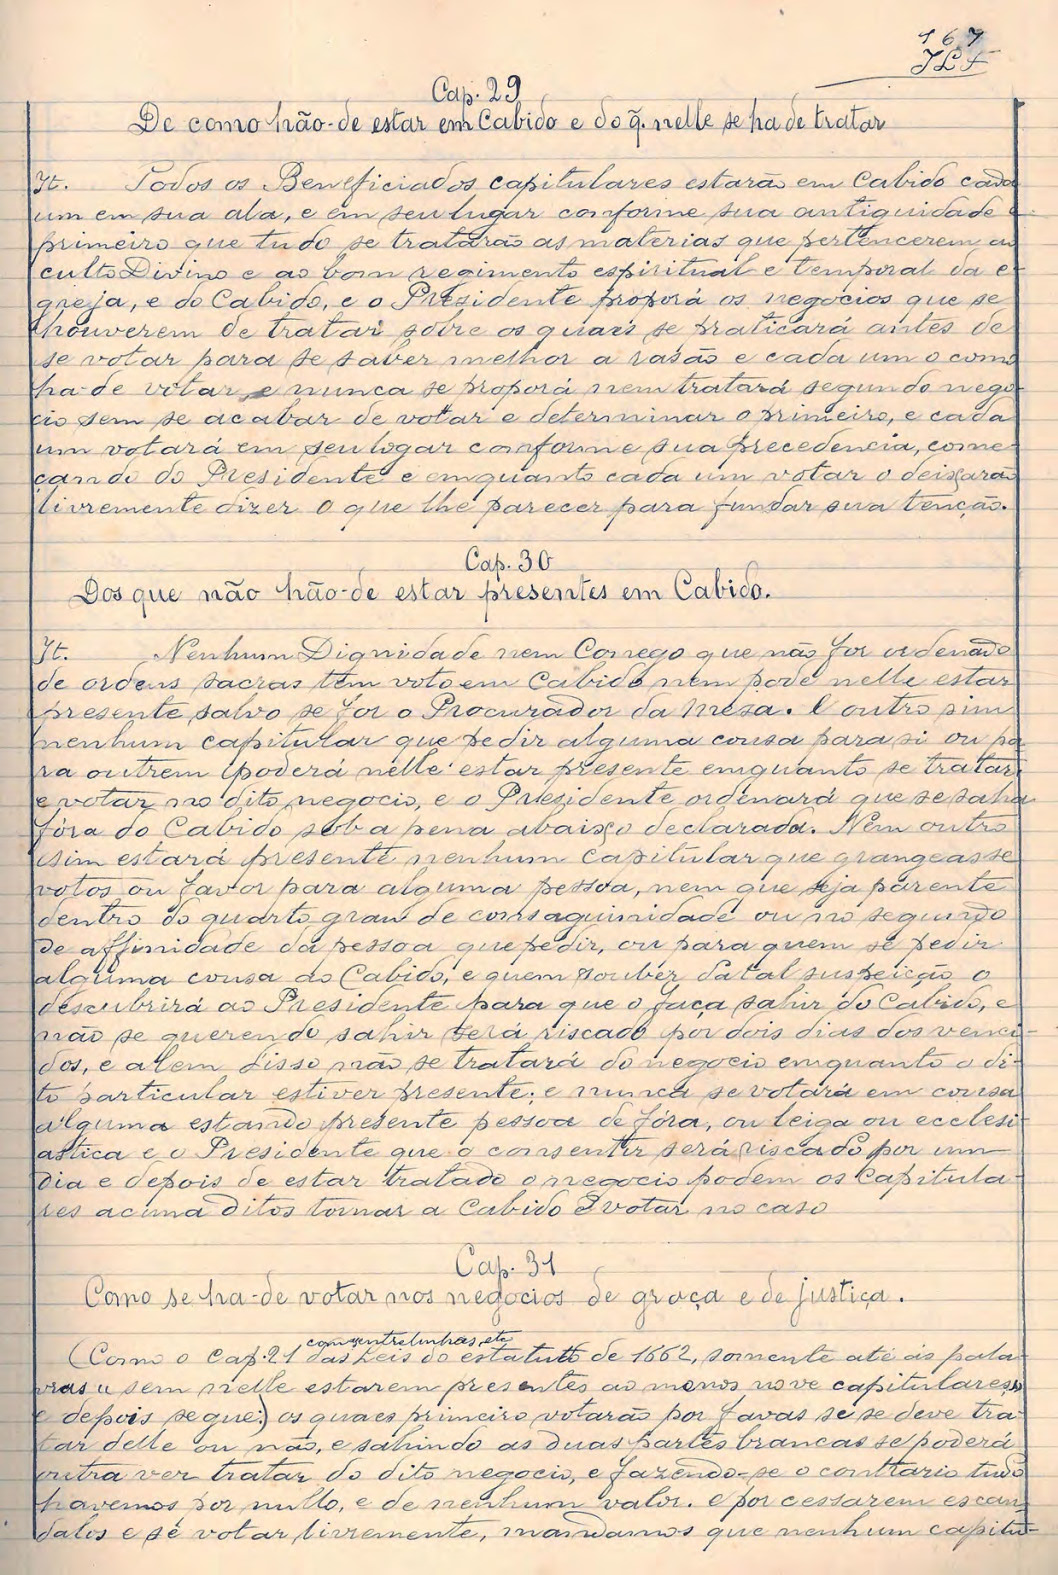 167
JLF
Cap. 29
De como hão-de estar em Cabido e do q̃. nelle se ha de tratar
It. Todos os Beneficiados capitulares estarão em Cabido cada
um em sua aba, e em seu lugar conforme sua antiguidade e
primeiro que tudo se tratarão as materias que pertencerem ao
culto Divino e ao bom regimento espiritual e temporal da e-
greja, e do Cabido, e o Presidente proporá os negocios que se
houverem de tratar sobre os quais se praticará antes de
se votar para se saber melhor a rasão e cada um o como
ha-de votar, e nunca se proporá nem tratará segundo nego-
cio sem se acabar de votar e determinar o primeiro, e cada
um votará em seu logar conforme sua precedencia, come-
çando do Presidente e emquanto cada um votar o deixarão
livremente dizer o que lhe parecer para fundar sua tenção.
Cap. 30
Dos que não hão-de estar presentes em Cabido.
It. Nenhum Dignidade nem Conego que não for ordenado
de ordens sacras têm voto em Cabido nem pode nelle estar
presente salvo se for o Procurador da Mesa. E outro sim
nenhum capitular que pedir alguma cousa para si ou pa-
ra outrem poderá nelle estar presente emquanto se tratar
e votar no dito negocio, e o Presidente ordenará que se saha
fóra do Cabido sob a pena abaixo declarada. Nem outro
sim estará presente nenhum capitular que grangeasse
votos ou favor para alguma pessoa, nem que seja parente
dentro do quarto grau de consaguinidade ou no segundo
de affinidade da pessoa que pedir, ou para quem se pedir
alguma cousa ao Cabido, e quem souber da tal suspeicção o
descubrirá ao Presidente para que o faça sahir do Cabido, e
não se querendo sahir será riscado por dois dias dos venci-
dos, e alem disso não se tratará do negocio emquanto o di-
to particular estiver presente; e nunca se votará em cousa
alguma estando presente pessoa de fóra, ou leiga ou ecclesi-
astica e o Presidente que o consentir será riscado por um
dia e depois de estar tratado o negocio podem os Capitula-
res acima ditos tornar a Cabido e votar no caso
Cap. 31
Como se ha-de votar nos negocios de graça e de justiça.
com entrelinhas, etc
(Como o Cap. 21 das Leis do estatuto de 1662, somente até ás pala-
vras u sem nelle estarem presentes ao menos nove capitulares»
e depois segue:) os quaes primeiro votarão por favas se se deve tra-
tar delle ou não, e sahindo as duas partes brancas se poderá
outra ver tratar do dito negocio, e fazendo-se o contrario tudo
havemos por nullo, e de nenhum valor. e por cessarem escan-
dalos e se votar livremente, mandamos que nenhum capitu-